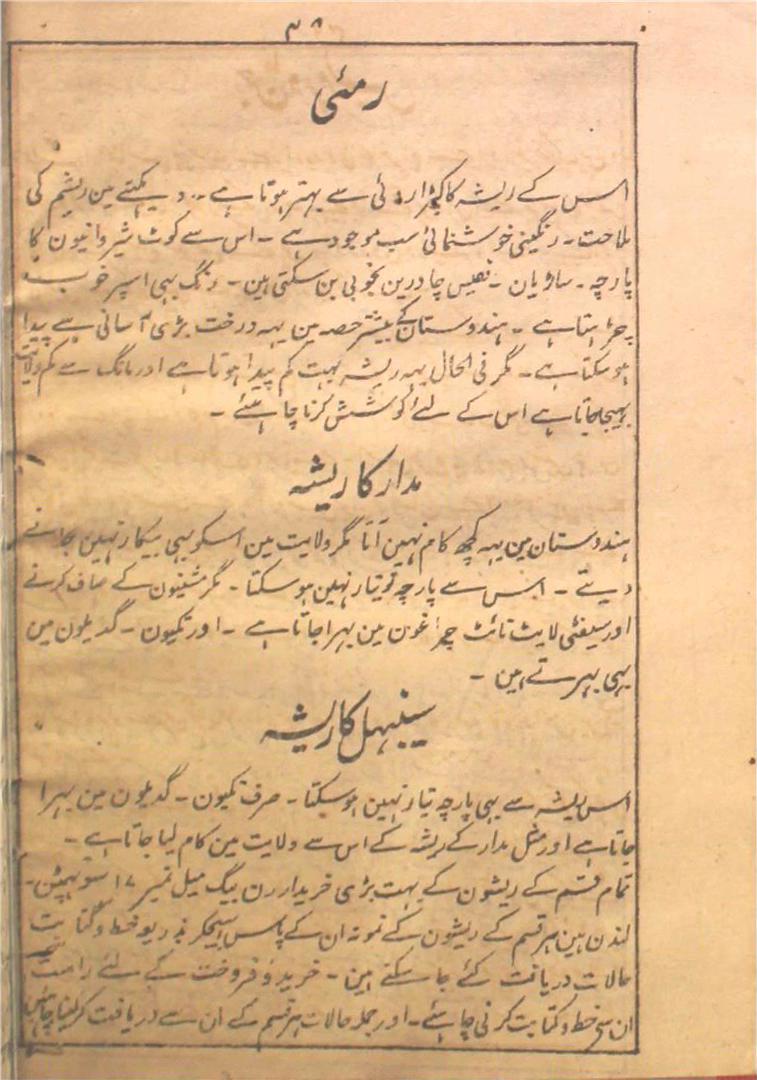 ۳۸
رمئی
اس کے ریشہ کا کپڑا روئی سے بہتر ہوتا ہے۔ دیکہنے مین ریشم کی
ملاحت۔ رنگینی خوشنمائی سب موجود ہے۔ اس سے کوٹ شیروانیون کا
پارچہ۔ ساڑیان۔ نفیس چادرین بخوبی بن سکتی ہین۔ رنگ بہی اسپر خوب
چڑہتا ہے۔ ہندوستان کے بیشتر حصہ مین یہہ درخت بڑی آسانی سے پیدا
ہوسکتا ہے۔ مگر فی الحال یہہ ریشہ بہت کم پیدا ہوتا ہے اور مانگ سے کم ولایت
بہیجا جاتا ہے اس کے لئے کوشش کرنا چاہئے۔
مدار کا ریشہ
ہندوستان مین یہہ کچھ کام نہین آتا مگر ولایت مین اسکو بہی بیکار نہین جانے
دیتے۔ اس سے پارچہ تو تیار نہین ہوسکتا۔ مگر مشینون کے صاف کرنے
اور سیفٹی لایٹ نائٹ چراغون مین بہرا جاتا ہے۔ اور تکیون۔ گدیلون مین
بہی بہرتے ہین۔
سینبہل کا ریشہ
اس ریشہ سے بہی پارچہ تیار نہین ہوسکتا۔ صرف تکیون۔ گدیلون مین بہرا
جاتا ہے اور مثل مدار کے ریشہ کے اس سے ولایت مین کام لیا جاتا ہے۔
تمام قسم کے ریشون کے بہت بڑی خریدار رن بیگ میل نمبر ۱۷
لندن ہین ہر قسم کے ریشون کے نمونہ ان کے پاس بہیجکر بذریعہ خط و کتابت
حالات دریافت کئے جا سکتے ہین۔ خرید و فروخت کے لئے راست
ان سے خط و کتابت کرنی چاہئے۔ اور جملہ حالات ہر قسم کے ان سے دریافت کرلینا چاہئین